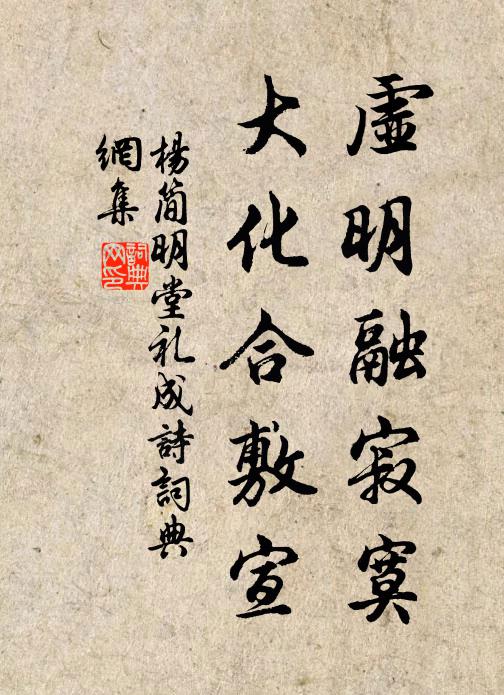 虛明融寂寞
大化合敷宣
楊简明堂礼成詩詞典
網集
詞典网印